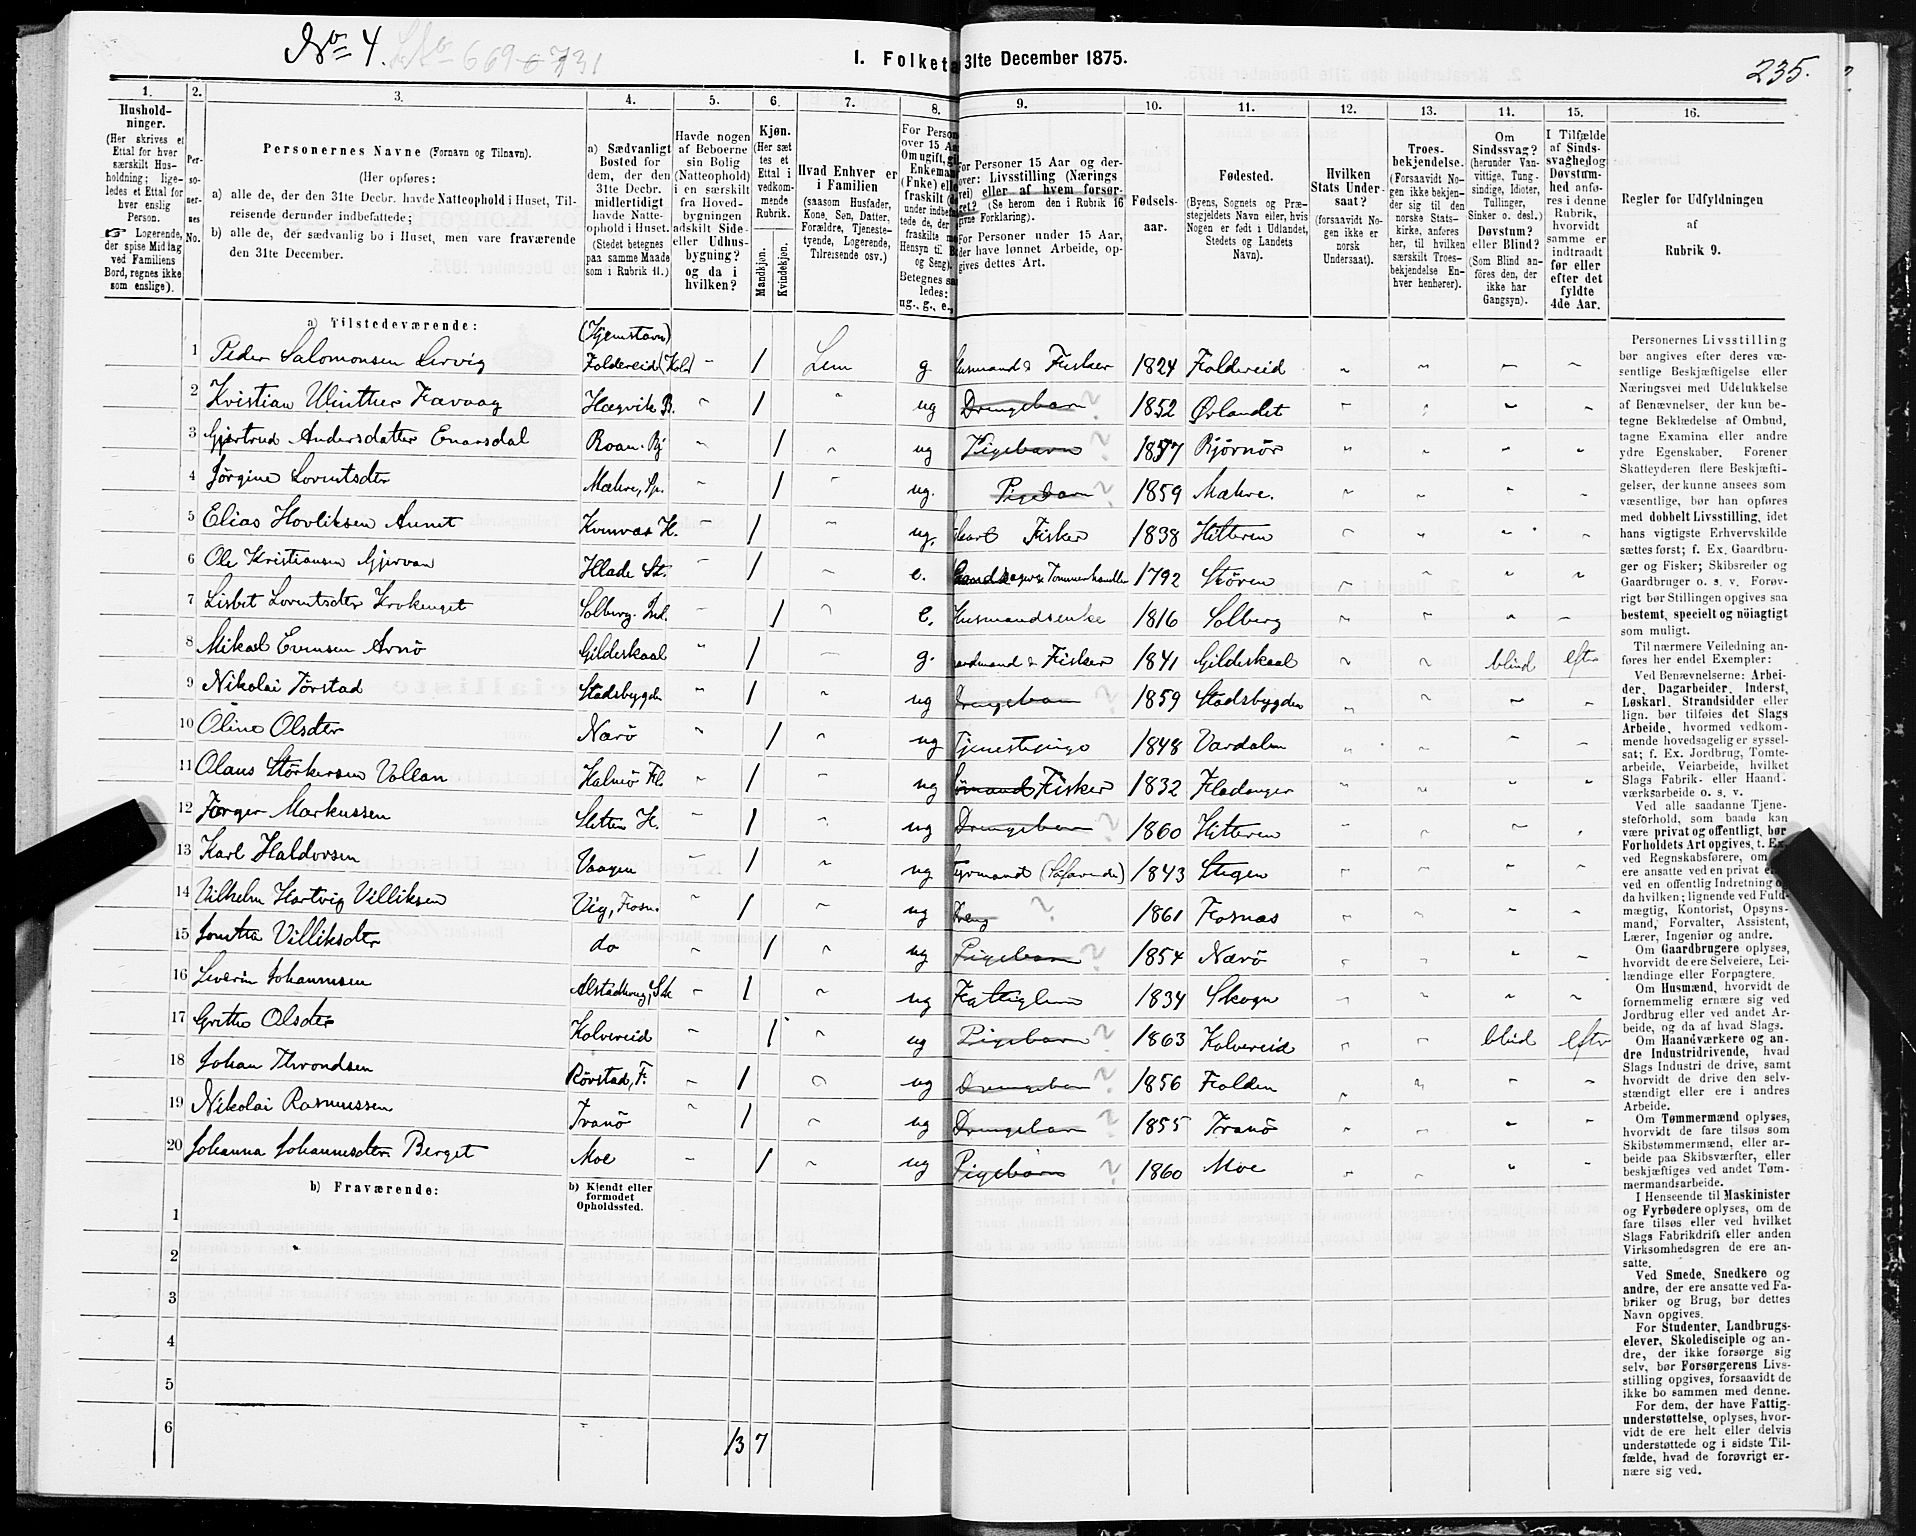 No 4. 669-731
I. Folketæ 31te December 1875.
235.
1. 2. 3. 4. 5. 6. 7. 8. 9. 10. 11. 12. 13. 14. 15. 16.
Hushold-
ninger.
(Her skrives et
Ettal for hver
særskilt Hus-
holdning; lige-
ledes et Ettal for
hver enslig
Person.
☞ Logerende,
der spise Middag
ved Familiens
Bord, regnes ikke
som enslige).
Per-
so-
ner-
nes
No.
Personernes Navne (Fornavn og Tilnavn).
(Her opføres:
a) alle de, der den 31te Decbr. havde Natteophold i Huset, Til-
reisende derunder indbefattede;
b) alle de, der sædvanlig bo i Huset, men vare fraværende
den 31te December.
a) Sædvanligt
Bosted for
dem, der den
31te Decbr.
midlertidigt
havde Natte-
ophold i Huset.
(Stedet betegnes
paa samme Maade
som i Rubrik 11.)
Havde nogen
af Beboerne
sin Bolig
(Natteophold)
i en særskilt
fra Hoved-
bygningen
adskilt Side-
eller Udhus-
bygning?
og da i
hvilken?
Kjøn.
(Her sæt
tes et
Ettal i
vedkom-
mende
Rubrik.
Mandkjøn.
Kvindekjøn.
Hvad Enhver er
i Familien
(saasom Husfader,
Kone, Søn, Datter,
Forældre, Tjeneste-
tyende, Logerende,
Tilreisende osv.)
For Person
over 15 Aar
Om ugift, gi
Enkeman
(Enke) elle
fraskilt
under indbe
tede de, der
fraskilte m
Hensyn til B
og Seng).
Betegnes sa
ledes:
ug., g., e.,
For Personer 15 Aar og der-
over: Livsstilling (Nærings
vei) eller af hvem forsør-
get? (Se herom den i Rubrik 16
givne Forklaring).
For Personer under 15 Aar,
der have lønnet Arbeide, op-
gives dettes Art.
Fødsels-
aar.
Fødested.
(Byens, Sognets og Præ-
stegjeldets Navn eller, hvis
Nogen er født i Udlandet,
Stedets og Landets
Navn).
Hvilken
Stats Under-
saat?
(forsaavidt No-
gen ikke er
norsk
Undersaat).
Troes-
bekjendelse.
(Forsaavidt No-
gen ikke bekjen-
der sig til den
norske Stats-
kirke, anføres
her, til hvilken
særskilt Troes-
bekjendelse En-
hver henhører).
Om
Sindssvag?
(herunder Van-
vittige, Tung-
sindige, Idioter,
Tullinger,
Sinker o. desl.)
Døvstum?
eller Blind?
(Som Blind an-
føres den, der
ikke har
Gangsyn).
I Tilfælde
af Sinds-
svaghed og
Døvstum-
hed anfø-
res i denne
Rubrik,
hvorvidt
samme er
indtraadt
før eller
efter det
fyldte
4de Aar.
Regler for Udfyldningen
af
Rubrik 9.
a) Tilstedeværende:
(Hjemstavn)
1 Peder Salomonsen Lervig Foldereid (Kolv) - 1 Lem g. Husmand & Fisker 1824 Foldereid
2 Kristian Winther Favaag Hægvik B. 1 ug Drengebarn ? 1852 Ørlandet
3 Gjertrud Andersdatter Enarsdal Roan. Bj 1 ug Pigebarn ? 1857 Bjørnør
4 Jørgine Lorentsdter Mæhre, Sp. 1 ug. Pigebarn ? 1859 Mæhre.
5 Elias Hovliksen Aunet Kvenvæs H. 1 ug. Fisker 1838 Hitteren
6 Ole Kristiansen Gjervan Hlade St. 1 e. Tømmerhandler 1792 Støren
7 Lisbet Lorentsdter Krokenget Solberg. Ind. 1 e. Husmandsenke 1816 Solberg
8 Mikal Evensen Arnö Gildeskaal 1 g. Gaardmand & Fisker 1841 Gildeskaal blind efter
9 Nikolai Törstad Stadsbygden 1 ug Drengebarn ? 1859 Stadsbygden
10 Oline Olsdter Nærö 1 ug Tjenestepige 1848 Værdalen
11 Olaus Störkersen Vollan Halmö Fl. 1 ug Fisker 1832 Fladanger
12 Jørger Markussen Sletten H. 1 ug Drengebarn ? 1860 Hitteren
13 Karl Haldorsen Vaagen 1 ug Styrmand (Söfarende) 1843 Stegen
14 Vilhelm Hartvig Villiksen Vig, Fosn. 1 ug Dreng ? 1861 Fosnæs
15 Jonetta Villiksdter do 1 ug Pigebarn ? 1854 Nærö
16 Severin Johannesen Alstadhoug, Sk 1 ug Fattiglem 1834 Skogn
17 Grethe Olsdter Kolvereid 1 ug Pigebarn ? 1863 Kolvereid blind efter
18 Johan Throndsen Rörstad, F. 1 ug Drengebarn ? 1856 Folden
19 Nikolai Rasmussen Tranö 1 ug Drengebarn ? 1855 Tranö
20 Johanna Johannesdter Berget Moe 1 ug Pigebarn ? 1860 Moe
b) Fraværende:
b) Kjendt eller
formodet
Opholdssted.
1
2
3
4
5
6
13 7
Personernes Livsstilling
bør angives efter deres væ-
sentlige Beskjæftigelse eller
Næringsvei med Udelukkelse
af Benævnelser, der kun be-
tegne Beklædelse af Ombud,
tagne Examina eller andre
ydre Egenskaber. Forener
Skatteyderen flere Beskjæfti-
gelser, der kunne ansees som
væsentlige, bør han opføres
med dobbelt Livsstilling, idet
hans vigtigste Erhvervskilde
sættes først; f. Ex. Gaardbru-
ger og Fisker; Skibsreder og
Gaardbruger o. s. v. Forøv-
rigt bør Stillingen opgives saa
bestemt, specielt og nöiagtigt
som muligt.
Til nærmere Veiledning an-
føres her endel Exempler:
Ved Benævnelserne: Arbei-
der, Dagarbeider, Inderst,
Løskarl, Strandsidder eller
lign. bør tilføies det Slags
Arbeide, hvormed vedkom-
mende hovedsagelig er syssel-
sat; f. Ex. Jordbrug, Tomte-
arbeide, Veiarbeide, hvilket
Slags Fabrik- eller Haand-
værksarbeide o. s. v.
Ved alle saadanne Tjene-
steforhold, som baade kan
være privat og offentligt, bør
Forholdets Art opgives, t. Ex.
ved Regnskabsførere, om
ere ansatte ved en privat el
ved en offentlig Indretning o
da hvilken; lignende ved Fuld-
mægtig, Kontorist, Opsyns-
mand, Forvalter, Assistent,
Lærer, Ingeniør og andre.
Om Gaardbrugere oplyses,
hvorvidt de ere Selveiere, Lei-
lændinge eller Forpagtere.
Om Husmænd, hvorvidt de
fornemmelig ernære sig ved
Jordbrug eller ved andet Ar-
beide, og da af hvad Slags.
Om Haandværkere og an-
dre Industridrivende, hvad
Slags Industri de drive, samt
hvorvidt de drive den selv-
stændigt eller ere i andres
Arbeide.
Om Tømmermænd oplyses,
hvorvidt de fare tilsøs som
Skibstømmermænd, eller ar-
beide paa Skibsværfter, eller
beskjæftiges ved andet Tøm-
mermandsarbeide.
I Henseende til Maskinister
og Fyrbødere oplyses, om de
fare tilsøs eller ved hvilket
Slags Fabrikdrift eller anden
Virksomhedsgren de ere an-
satte.
Ved Smede, Snedkere og
andre, der ere ansatte ved Fa-
briker og Brug, bør dettes
Navn opgives.
For Studenter, Landbrugs-
elever, Skoledisciple og an-
dre, der ikke forsørge sig
selv, bør Forsørgerens Livs-
stilling opgives, forsaavidt de
ikke bo sammen med denne.
For dem, der have Fattig-
understøttelse, oplyses, hvor-
vidt de ere helt eller delvis
understøttede og i sidste Til-
fælde, hvad de forøvrigt er-
nære sig ved.